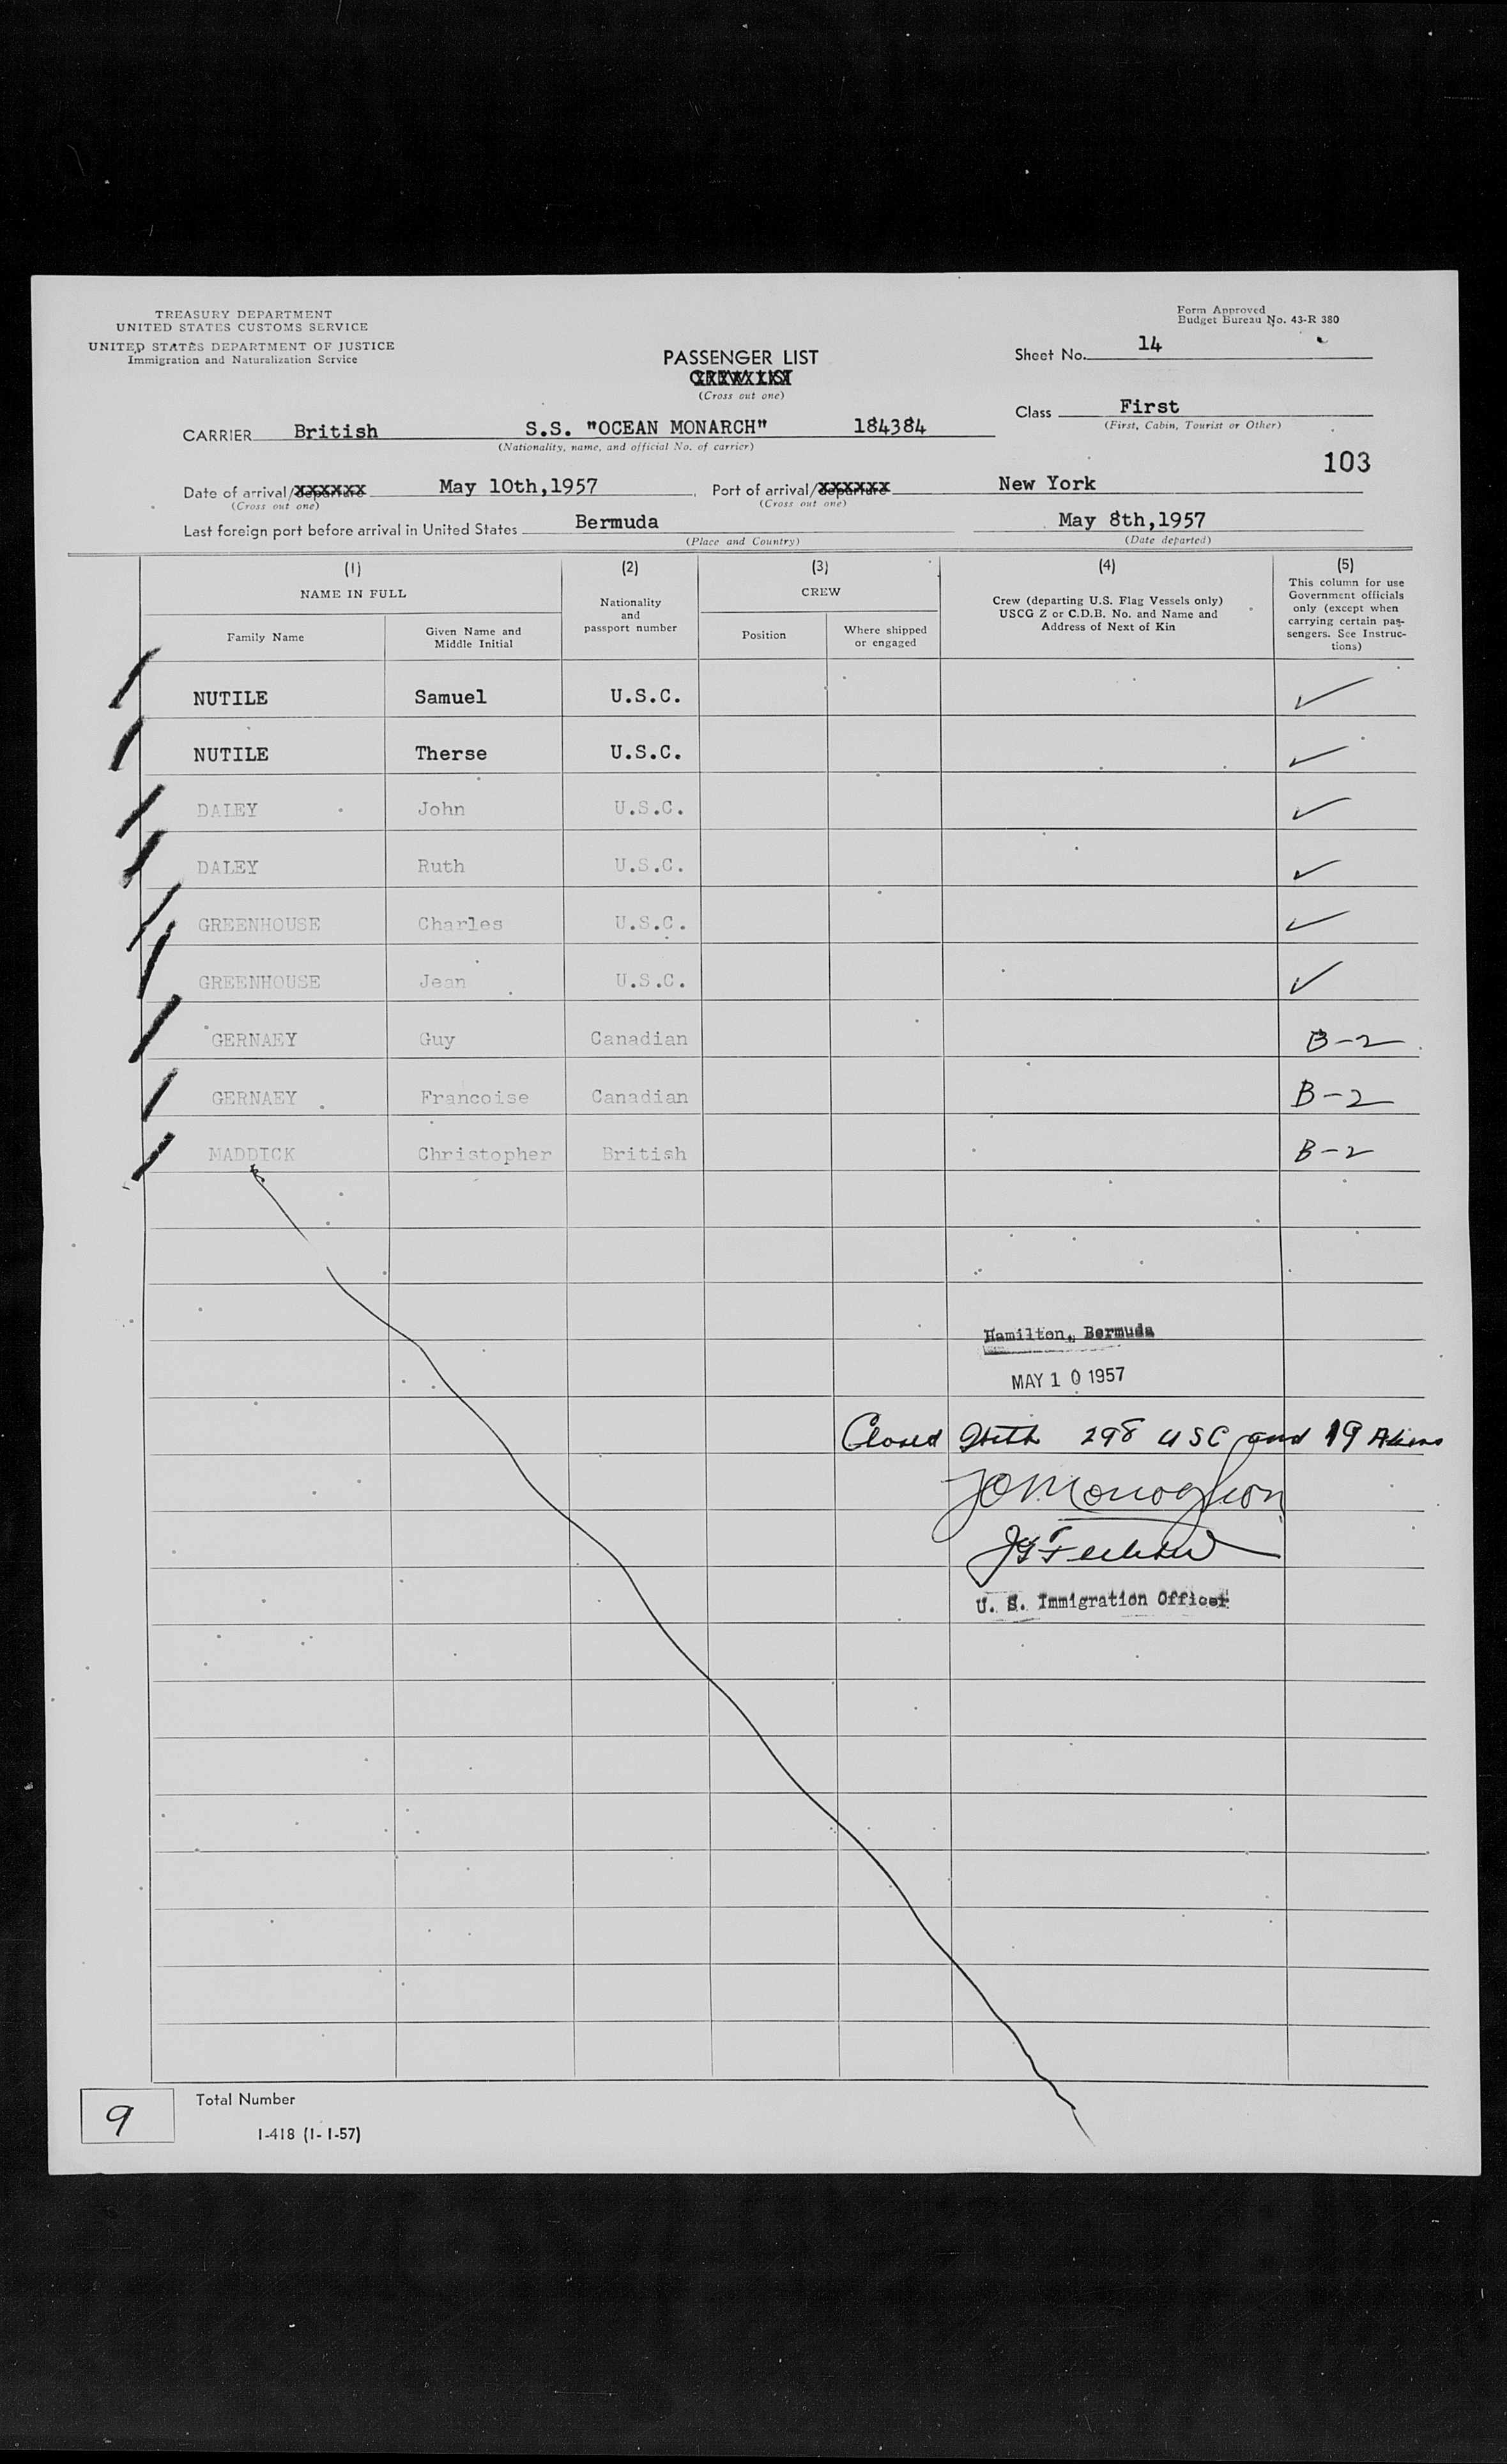 TREASURY DEPARTMENT
UNITED STATES CUSTOMS SERVICE
UNITED STATES DEPARTMENT OF JUSTICE
Immigration and Naturalization Service
Form Approved
Budget Bureau No. 43-R 380
PASSENGER LIST
(Cross out one)
Sheet No. 14
Class First
(First, Cabin, Tourist or Other)
CARRIER British S.S. "OCEAN MONARCH" 184384
(Nationality, name, and official No. of carrier)
103
Date of arrival/departure May 10th,1957 Port of arrival/departure New York
(Cross out one) (Cross out one)
Last foreign port before arrival in United States Bermuda May 8th,1957
(Place and Country) (Date departed)
(1) (2) (3) (4) (5)
NAME IN FULL
Family Name
Given Name and
Middle Initial
Nationality
and
passport number
CREW
Position
Where shipped
or engaged
Crew (departing U.S. Flag Vessels only)
USCG Z or C.D.B. No. and Name and
Address of Next of Kin
This column for use
Government officials
only (except when
carrying certain pas-
sengers. See Instruc-
tions)
NUTILE Samuel U.S.C. ✓
NUTILE Therse U.S.C. ✓
DALEY John U.S.C. ✓
DALEY Ruth U.S.C. ✓
GREENHOUSE Charles U.S.C. ✓
GREENHOUSE Jean U.S.C. ✓
GERNAEY Guy Canadian B-2
GERNAEY Francoise Canadian B-2
MADDICK Christopher British B-2
Hamilton, Bermuda
MAY 10 1957
Closed With 298 USC and 19 Aliens
U. S. Immigration Officer
9
Total Number
I-418 (1-1-57)